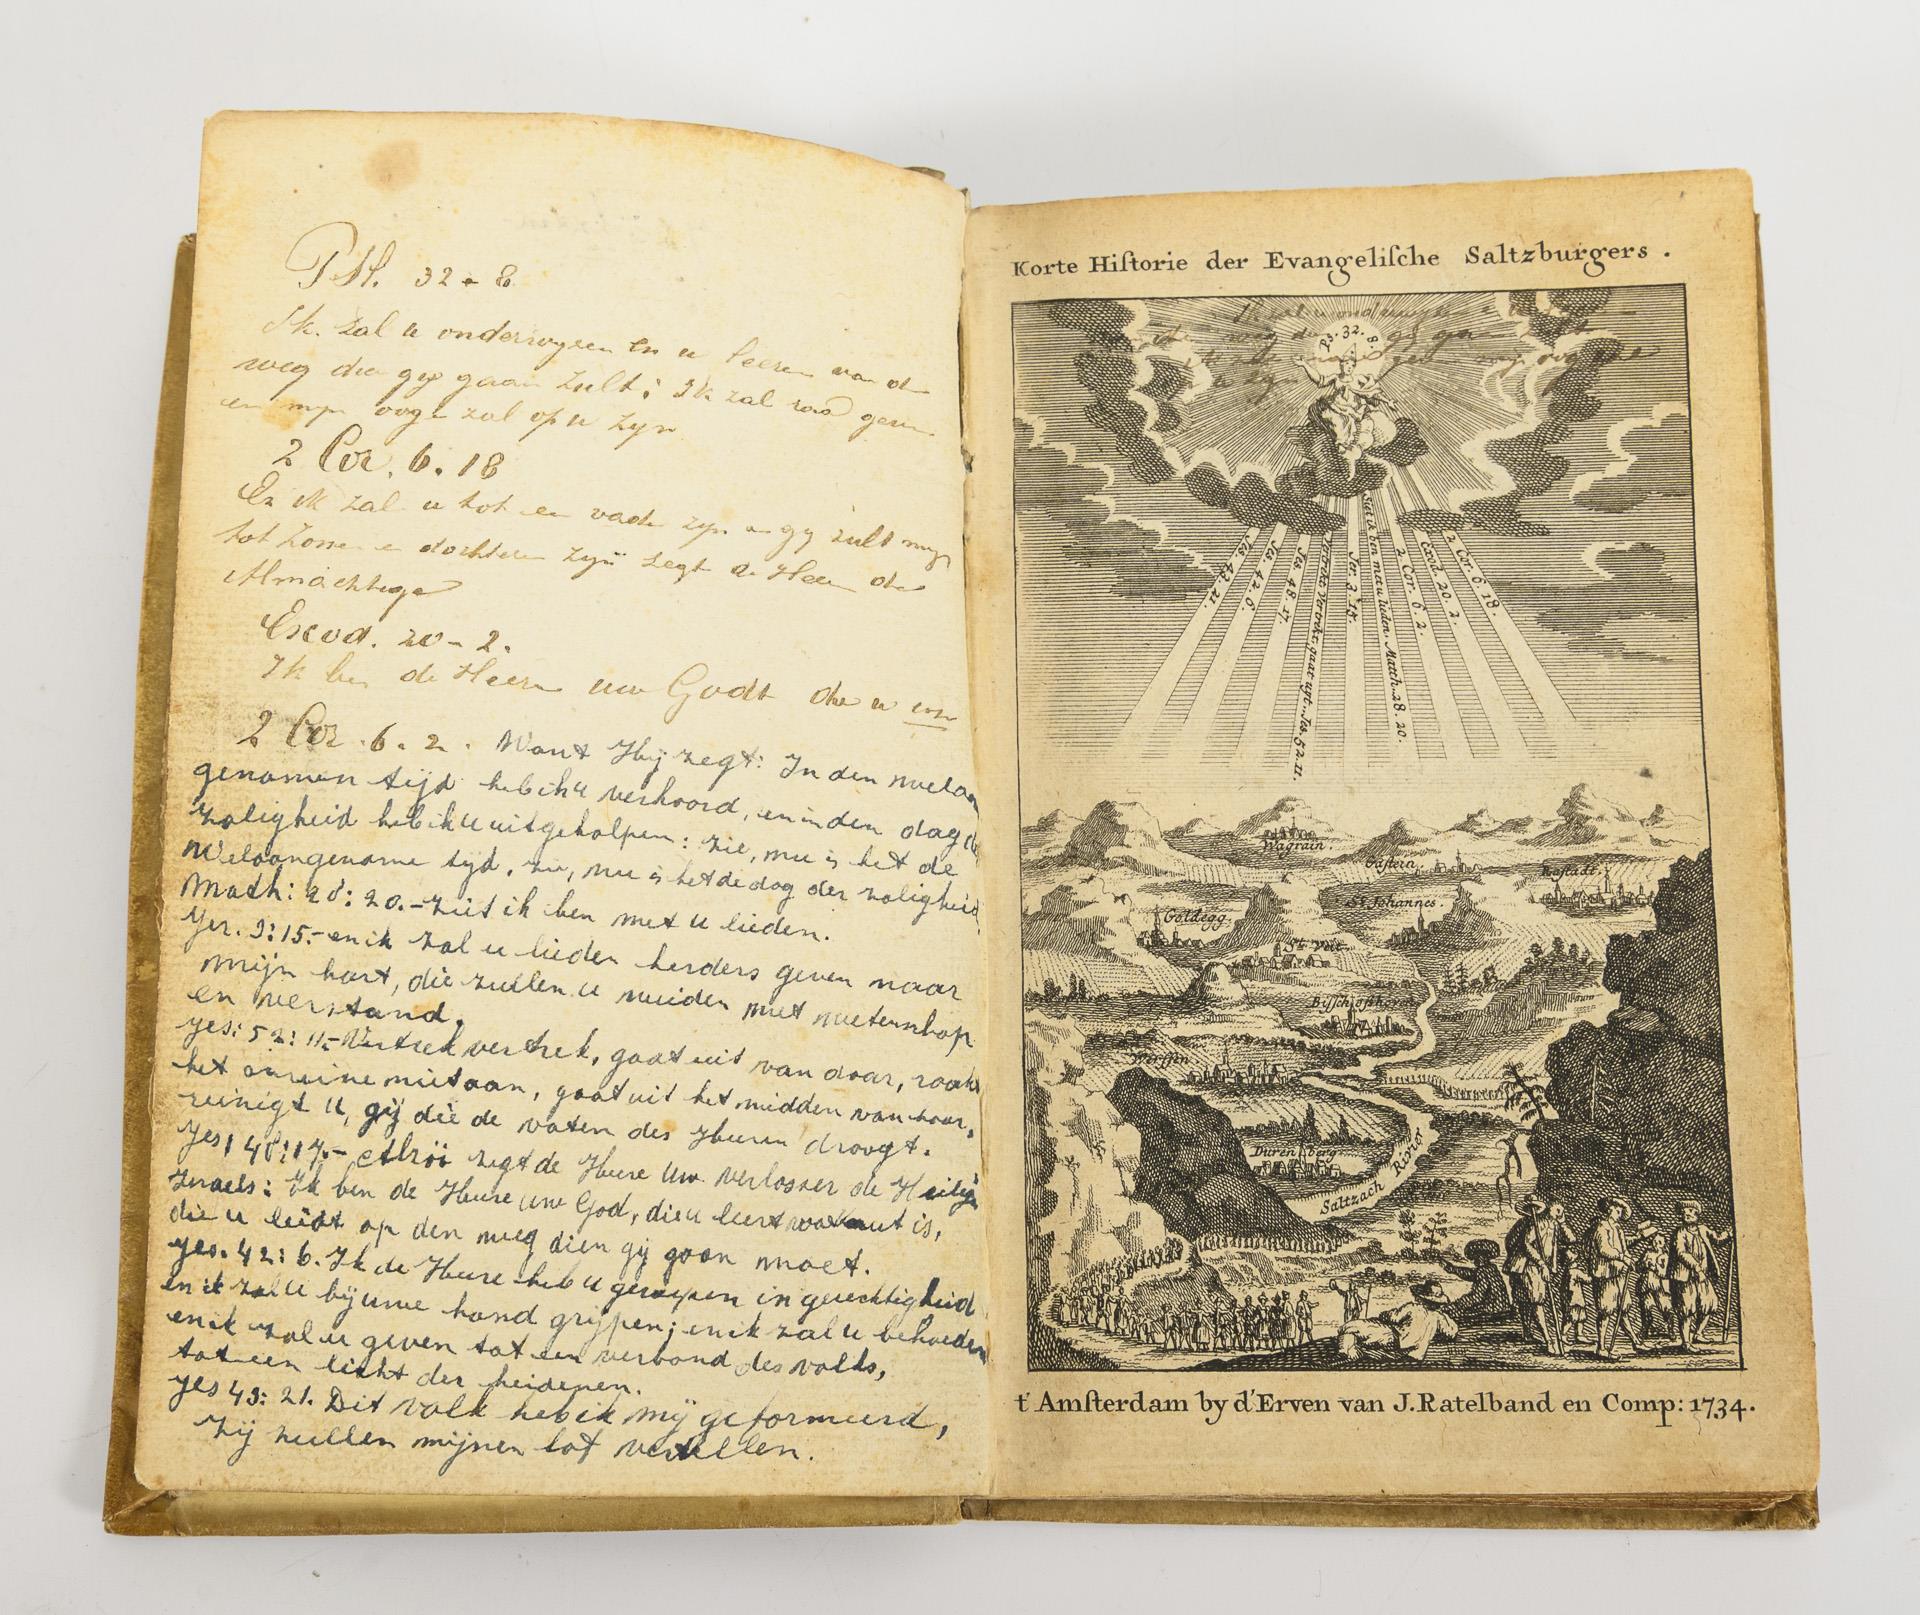 Psl. 32-8
Ik zal u onderwyzen en u leeren van den
weg dien gy gaan zult; Ik zal raad geven
en myn ooge zal op u zyn
2 Cor. 6. 18
En ik zal u tot een vader zyn en gy zult myn
tot zonen en dochteren zyn zegt de Heere de
Almachtige
Exod. 20-2.
Ik ben de Heere uw Godt die u
2 Cor. 6. 2. Want Hij zegt: In den welaan
genamen tijd heb ik u verhoord, en in den dag der
zaligheid heb ik u uitgeholpen: zie, nu is het de
Welaangename tijd, zie, nu is het de dag der zaligheid
Math: 28: 20. - ziet ik ben met u lieden.
Jer. 3:15. - en ik zal u lieden herders geven naar
mijn hart, die zullen u weiden met wetenschap
en verstand.
Yes: 52: 11 - Vertrek vertrek, gaat uit van daar, raakt
het onreine niet aan, gaat uit het midden van haar,
reinigt u, gij die de vaten des Heeren draagt.
Yes 48:17. - Alzoo zegt de Heere Uw verlosser de Heilige
Israels: Ik ben de Heere uw God, die u leert wat nut is,
die u leidt op den weg dien gij gaan moet.
Yes. 42: 6. Ik de Heere heb u geroepen in gerechtigheid
en ik zal u bij uwe hand grijpen; en ik zal u behoeden
en ik zal u geven tot een verbond des volks,
tot een licht der heidenen.
Yes 43: 21. Dit volk heb ik mij geformeerd,
Zij zullen mijnen lof vertellen.
Korte Hiſtorie der Evangeliſche Saltzburgers.
Ps. 32. 8.
Jes. 43. 21.
Jes. 42. 6.
Jes. 48. 17.
Vertrekt, Vertrekt, gaat uyt. Jes. 52. 11.
Jer. 3. 15.
Siet ik ben met u lieden. Matth. 28. 20.
2 Cor. 6. 2.
Exod. 20. 2.
2 Cor. 6. 18.
Wagrain.
Gastern.
Rastadt.
St. Johannes.
Goldegg
St. Veit
Bisschophoven
Werffen
Durenberg
Saltzach Rivier
t' Amſterdam by d'Erven van J. Ratelband en Comp: 1734.